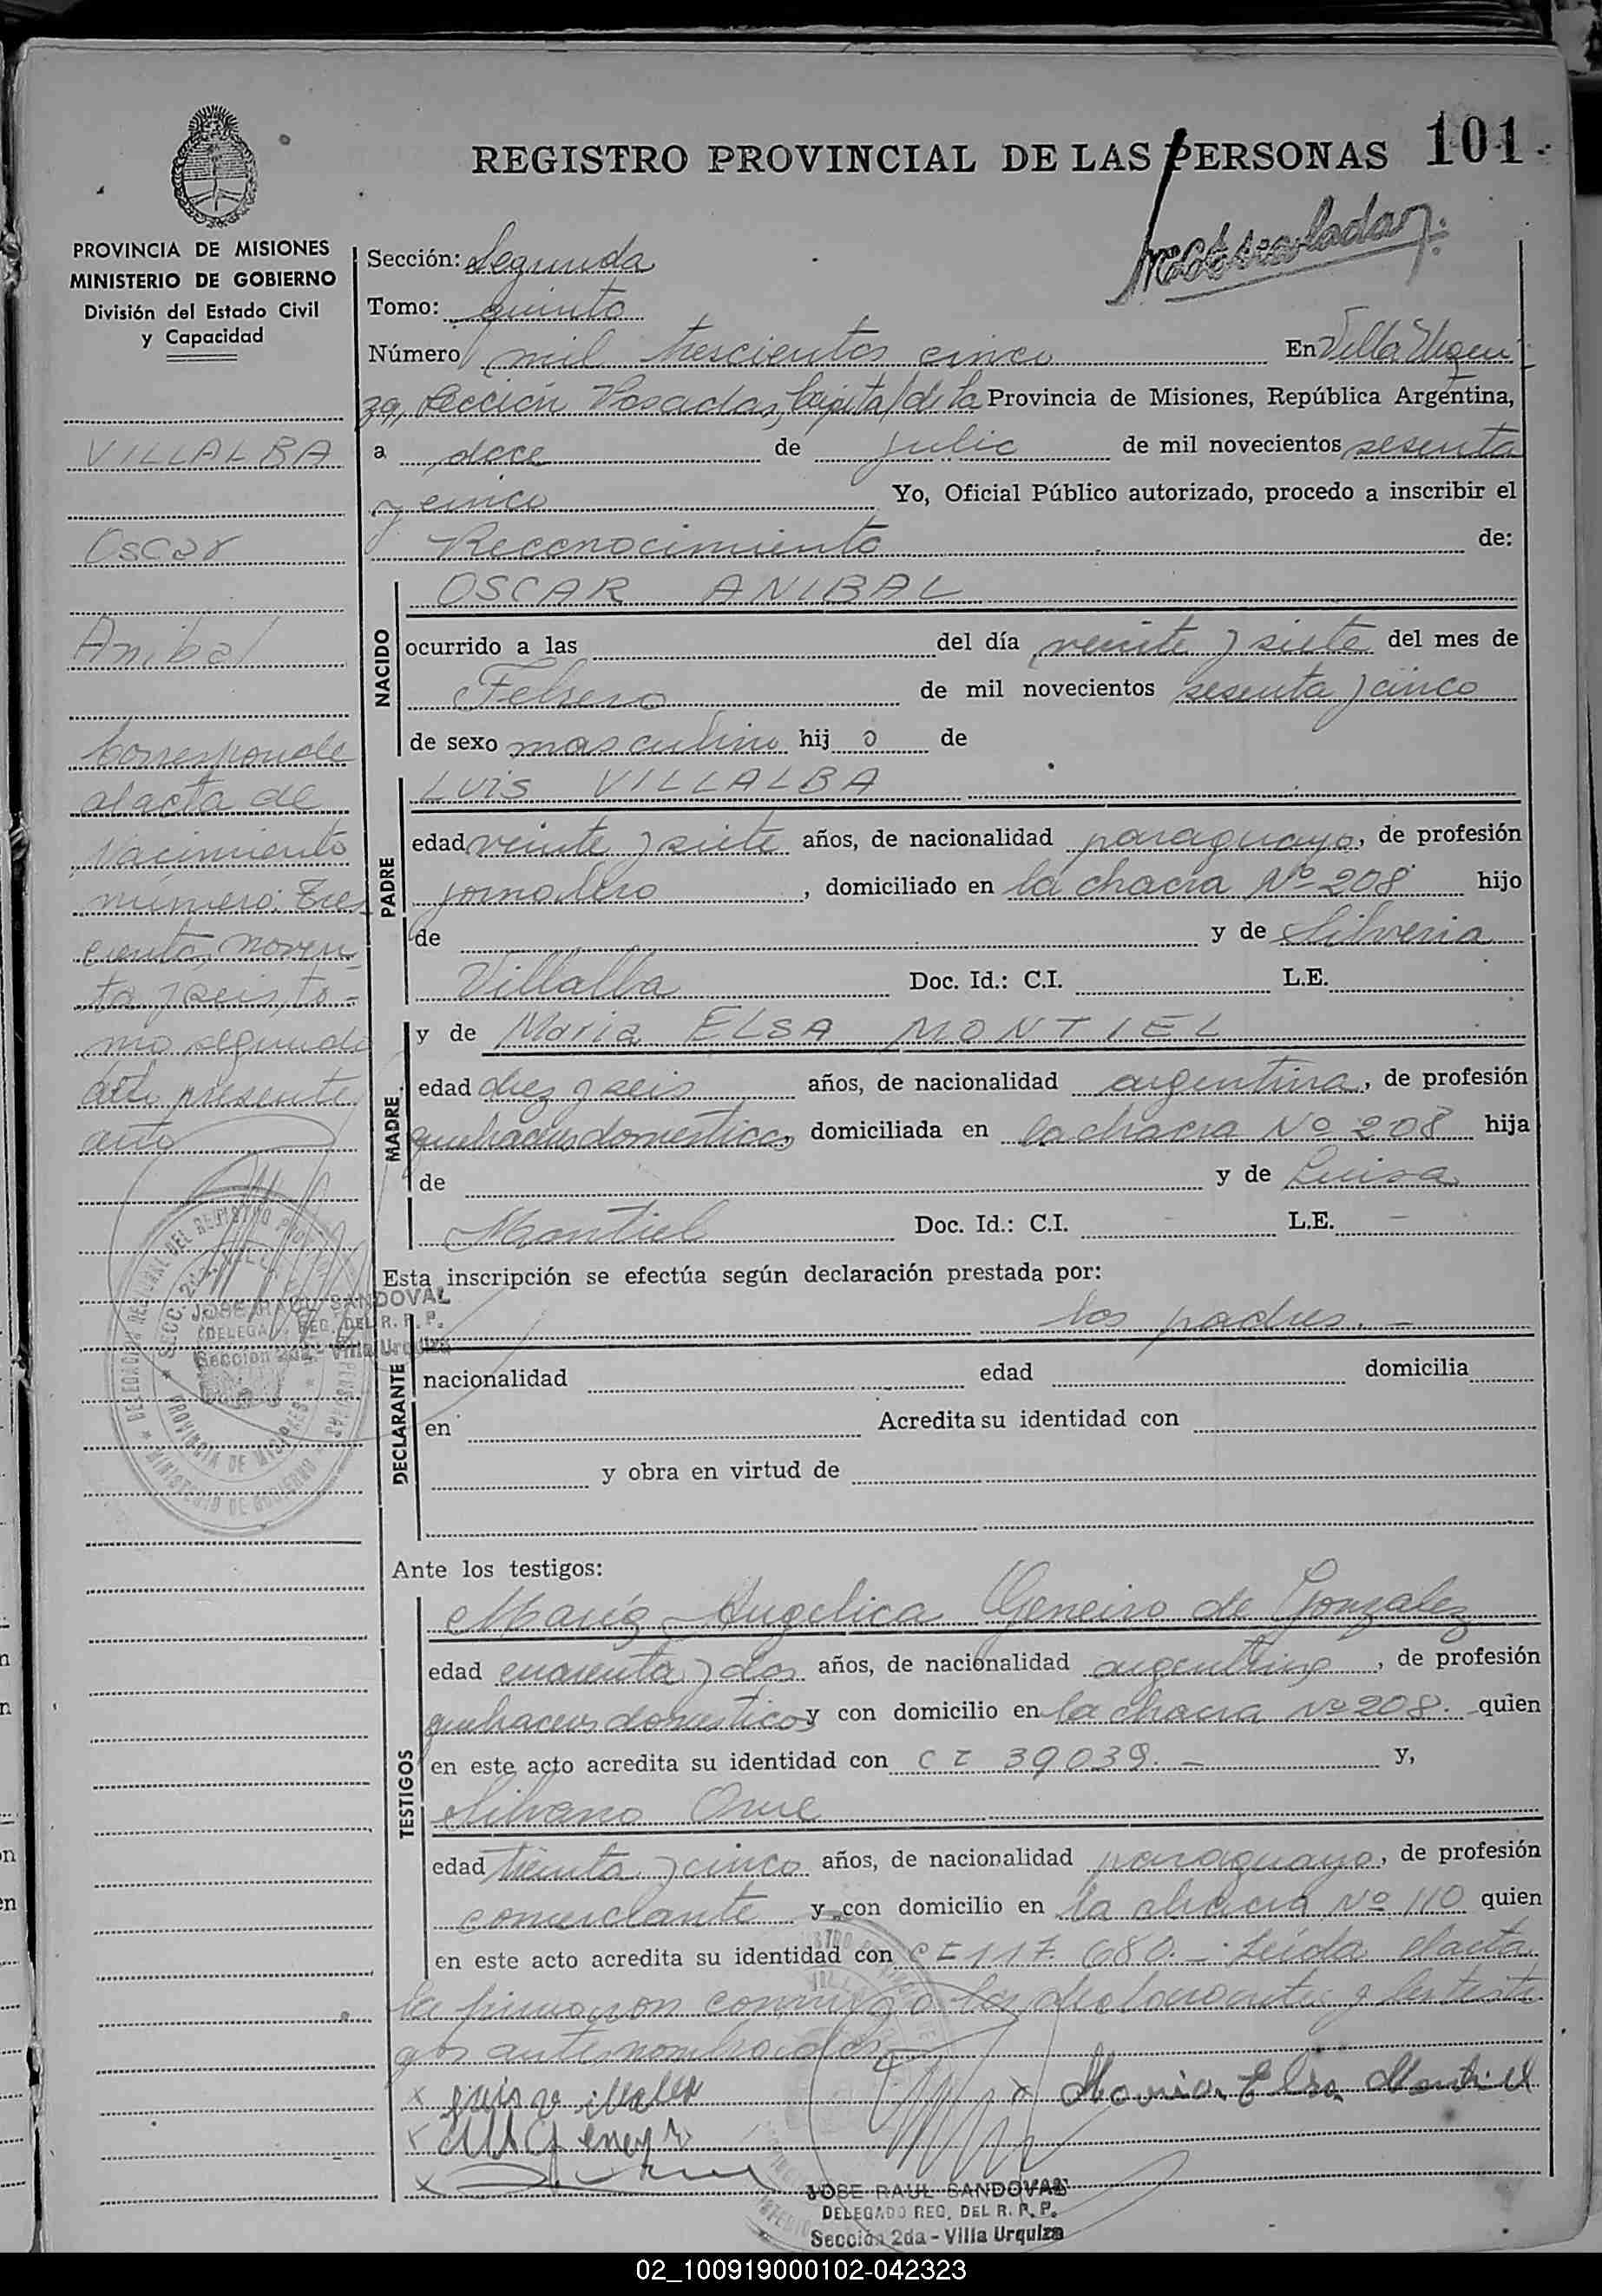 REGISTRO PROVINCIAL DE LAS PERSONAS 101
PROVINCIA DE MISIONES
MINISTERIO DE GOBIERNO
División del Estado Civil
y Capacidad
VILLALBA
Oscar
Anibal
Corresponde
al acta de
nacimiento
número: Tres
cientos noven
ta y seis, to-
mo segundo
del presente
año
JOSE RAUL SANDOVAL
DELEGADO REG. DEL R. P. P.
Sección 2da - Villa Urquiza
Sección: Segunda
Tomo: quinto
Número mil trescientos cinco En Villa Urqui
za, Sección Posadas, Capital de la Provincia de Misiones, República Argentina,
a doce de julio de mil novecientos sesenta
y cinco Yo, Oficial Público autorizado, procedo a inscribir el
Reconocimiento de:
NACIDO
OSCAR ANIBAL
ocurrido a las del día veinte y siete del mes de
Febrero de mil novecientos sesenta y cinco
de sexo masculino hij o de
PADRE
Luis VILLALBA
edad veinte y siete años, de nacionalidad paraguaya, de profesión
jornalero, domiciliado en la chacra Nº 208 hijo
de y de Silveria
Villalba Doc. Id.: C.I. L.E.
MADRE
y de Maria ELSA MONTIEL
edad diez y seis años, de nacionalidad argentina, de profesión
quehaceres domesticos, domiciliada en la chacra Nº 208 hija
de y de Luisa
Montiel Doc. Id.: C.I. L.E. -
Esta inscripción se efectúa según declaración prestada por:
DECLARANTE
los padres. -
nacionalidad edad domicilia
en Acredita su identidad con
y obra en virtud de
Ante los testigos:
TESTIGOS
María Angelica Geneiro de Gonzalez
edad cuarenta y dos años, de nacionalidad argentina, de profesión
quehaceres domesticos y con domicilio en la chacra Nº 208. quien
en este acto acredita su identidad con C I 39039. - y,
Silvano Orue
edad treinta y cinco años, de nacionalidad paraguayo, de profesión
comerciante y con domicilio en la chacra Nº 110 quien
en este acto acredita su identidad con C I 117.680. - Leída el acta
la firmaron conmigo los declarantes y los testi
gos antes nombrados
x Luis Villalba x Maria Elsa Montiel
x
x
JOSE RAUL SANDOVAL
DELEGADO REG. DEL R. P. P.
Sección 2da - Villa Urquiza
02_100919000102-042323